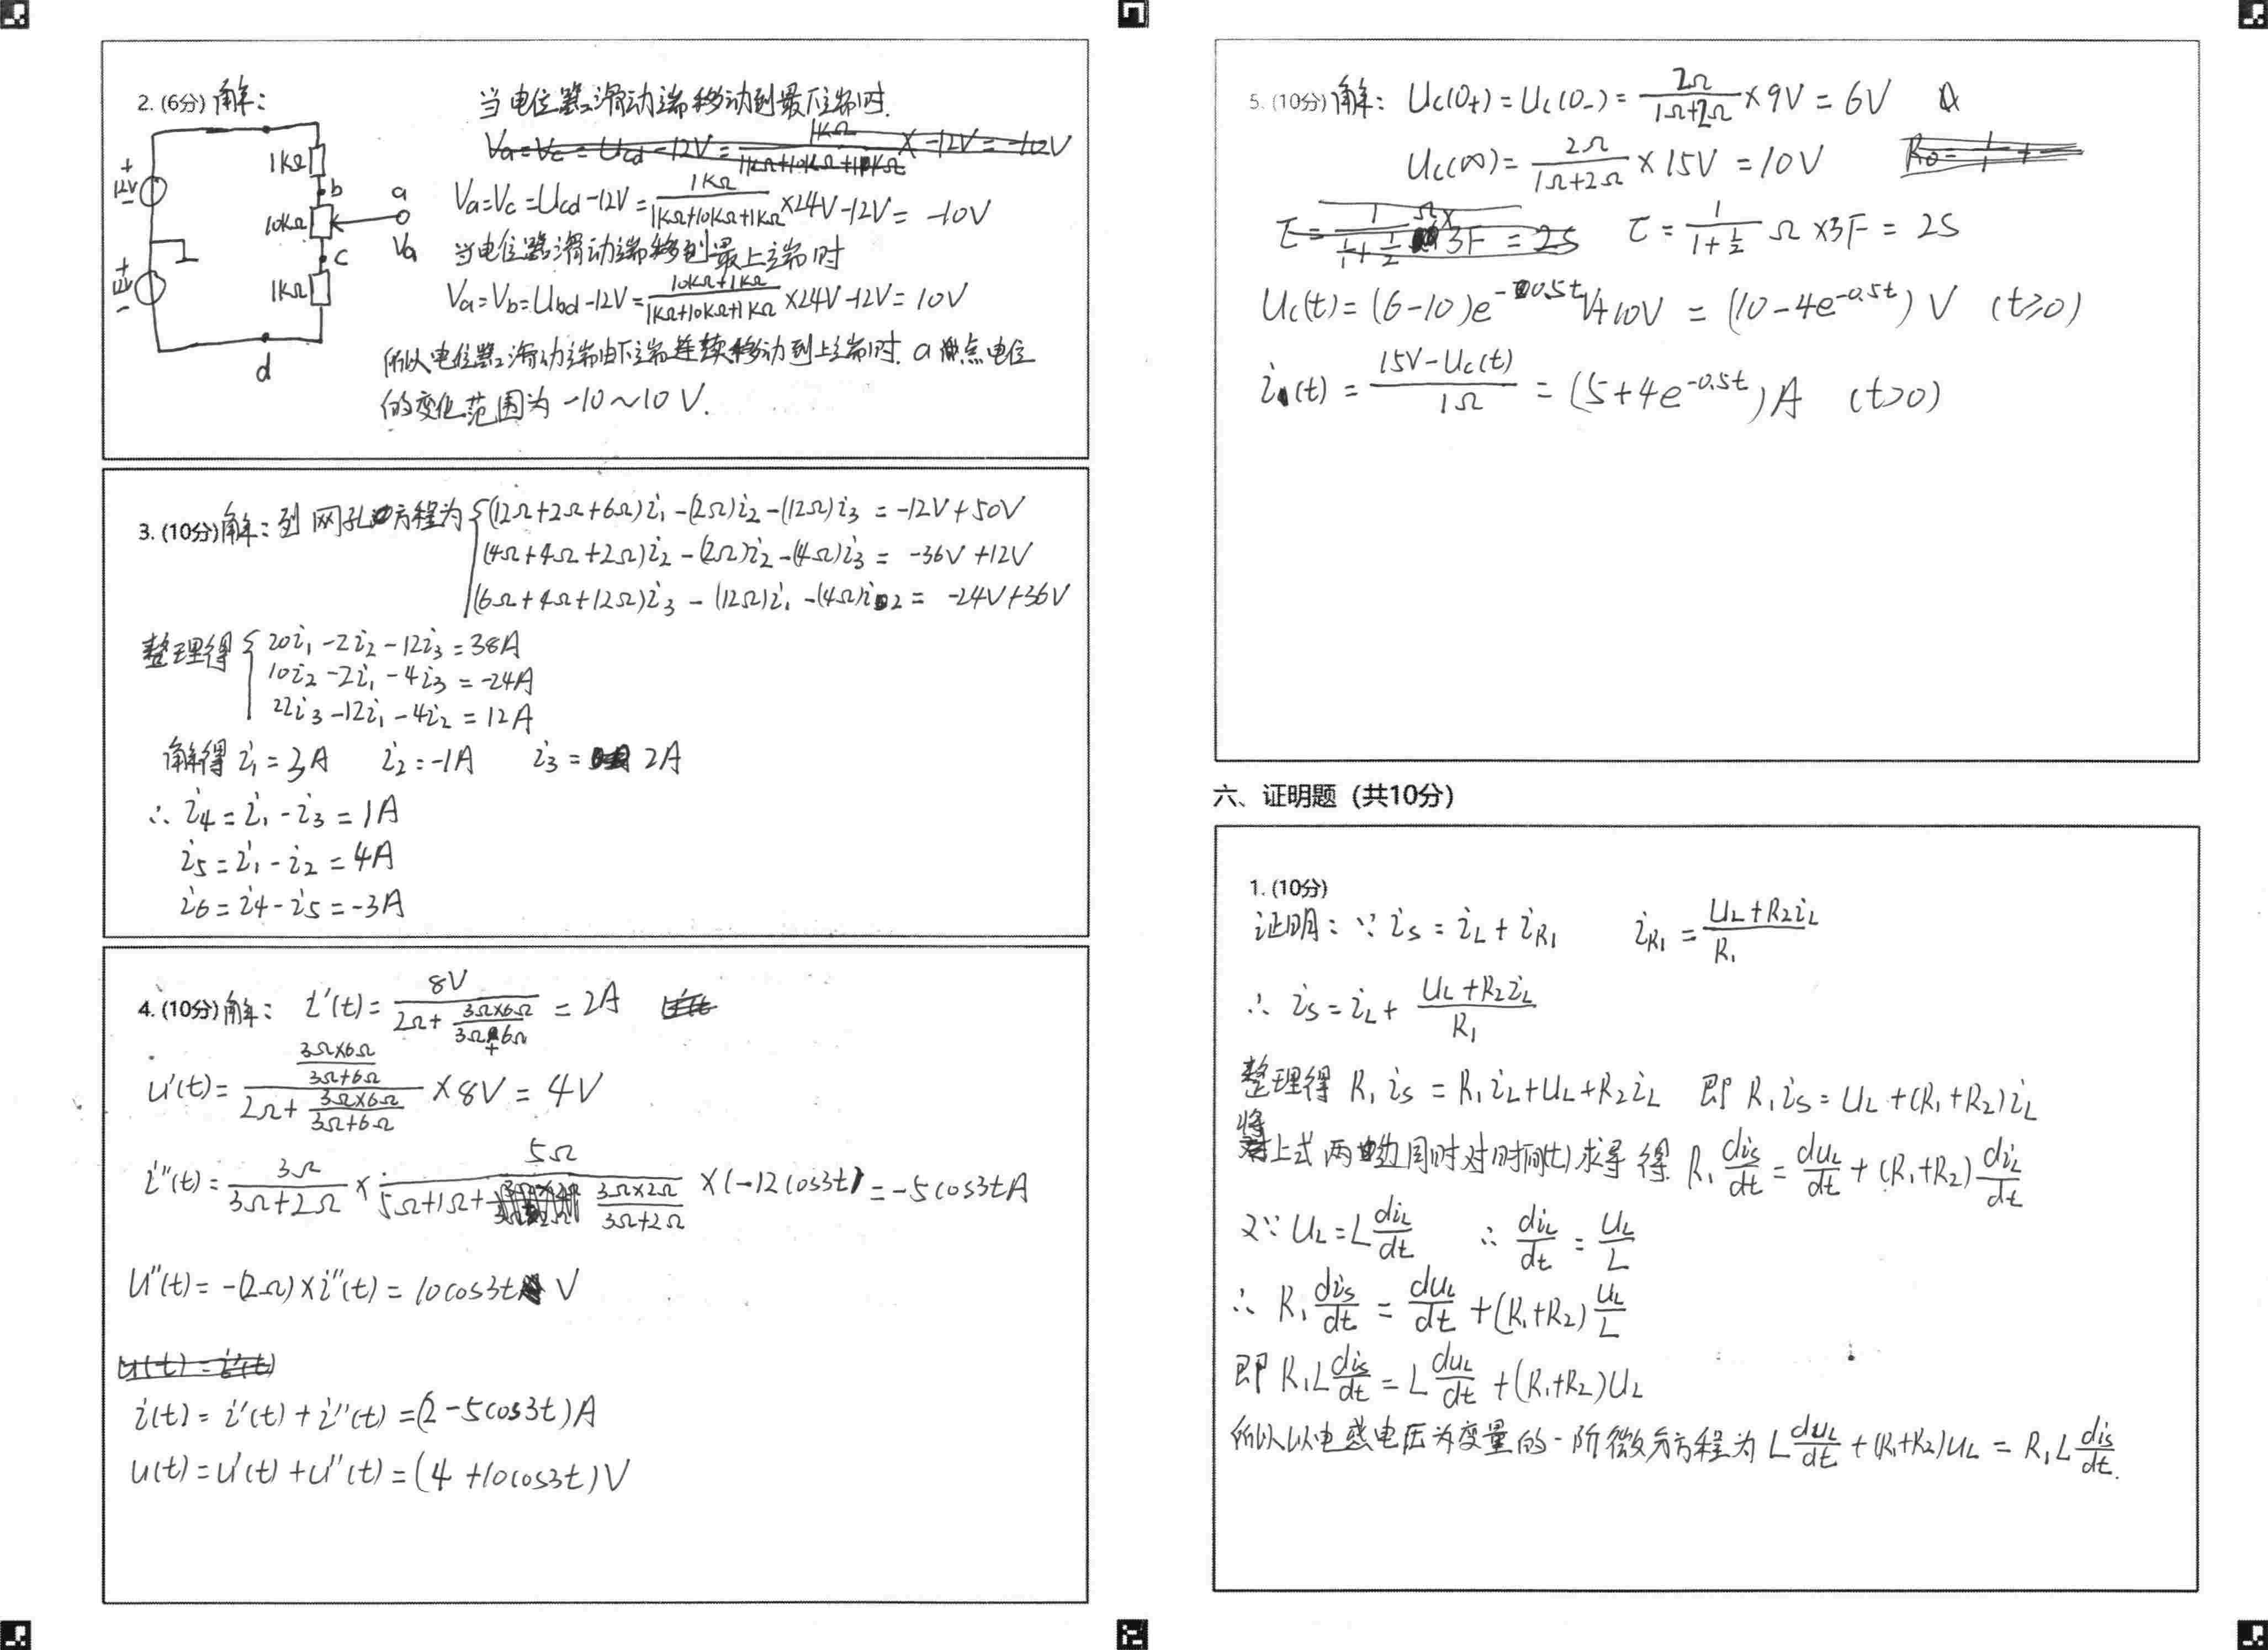 2. (6分) 解：
当电位器滑动端移动到最下端时.
Va=Vc=Ucd-12V=1KΩ/(1KΩ+10KΩ+1KΩ)×-12V=-10V
Va=Vc=Ucd-12V=1KΩ/(1KΩ+10KΩ+1KΩ)×24V-12V=-10V
当电位器滑动端移到最上端时
Va=Vb=Ubd-12V=(10KΩ+1KΩ)/(1KΩ+10KΩ+1KΩ)×24V-12V=10V
所以电位器滑动端由下端连续移动到上端时. a点电位
的变化范围为-10~10V.
+
12V
-
+
12V
-
1KΩ
b
10KΩ
a
Va
c
1KΩ
d
3. (10分) 解：列网孔方程为 {(12Ω+2Ω+6Ω)i₁-(2Ω)i₂-(12Ω)i₃=-12V+50V
(4Ω+4Ω+2Ω)i₂-(2Ω)i₂-(4Ω)i₃=-36V+12V
(6Ω+4Ω+12Ω)i₃-(12Ω)i₁-(4Ω)i₂=-24V+36V
整理得 {20i₁-2i₂-12i₃=38A
10i₂-2i₁-4i₃=-24A
22i₃-12i₁-4i₂=12A
解得 i₁=3A i₂=-1A i₃=2A
∴ i₄=i₁-i₃=1A
i₅=i₁-i₂=4A
i₆=i₄-i₅=-3A
4. (10分) 解： i'(t)=8V/(2Ω+(3Ω×6Ω)/(3Ω+6Ω))=2A
u'(t)=((3Ω×6Ω)/(3Ω+6Ω))/(2Ω+(3Ω×6Ω)/(3Ω+6Ω))×8V=4V
i''(t)=3Ω/(3Ω+2Ω)×5Ω/(5Ω+1Ω+(3Ω×2Ω)/(3Ω+2Ω))×(-12cos3t)=-5cos3tA
u''(t)=-(2Ω)×i''(t)=10cos3t V
u(t)=i'(t)
i(t)=i'(t)+i''(t)=(2-5cos3t)A
u(t)=u'(t)+u''(t)=(4+10cos3t)V
5. (10分) 解： Uc(0₊)=Uc(0₋)=2Ω/(1Ω+2Ω)×9V=6V
Uc(∞)=2Ω/(1Ω+2Ω)×15V=10V
τ=1/(1/1+1/2)Ω×3F=2S τ=1/(1+1/2)Ω×3F=2S
Uc(t)=(6-10)e^(-0.5t)V+10V=(10-4e^(-0.5t))V (t≥0)
i(t)=(15V-Uc(t))/1Ω=(5+4e^(-0.5t))A (t>0)
六、证明题（共10分）
1. (10分)
证明：∵ is=iL+iR₁ iR₁=(UL+R₂iL)/R₁
∴ is=iL+(UL+R₂iL)/R₁
整理得 R₁is=R₁iL+UL+R₂iL 即 R₁is=UL+(R₁+R₂)iL
将上式两边同时对时间(t)求导得 R₁dis/dt=duL/dt+(R₁+R₂)diL/dt
又∵ UL=LdiL/dt ∴ diL/dt=UL/L
∴ R₁dis/dt=duL/dt+(R₁+R₂)UL/L
即 R₁Ldis/dt=LduL/dt+(R₁+R₂)UL
所以以电感电压为变量的一阶微分方程为 LduL/dt+(R₁+R₂)UL=R₁Ldis/dt.